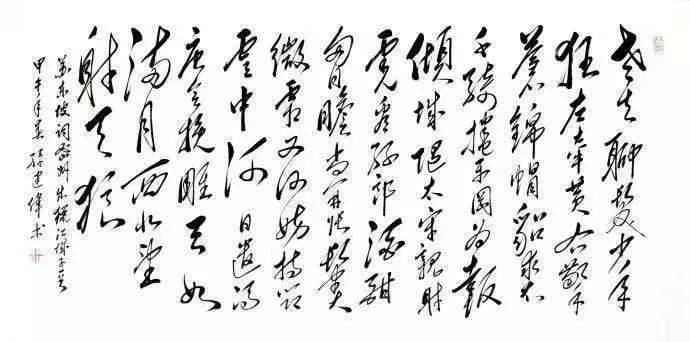 老夫聊發少年
狂左牽黃右擎
蒼錦帽貂裘
千騎捲平岡為報
傾城隨太守親射
虎看孫郎酒酣
胸膽尚開張鬢
微霜又何妨持節
雲中何日遣馮
唐會挽雕弓如
滿月西北望
射天狼
蘇東坡詞密州出獵江城子
甲午年春建偉書